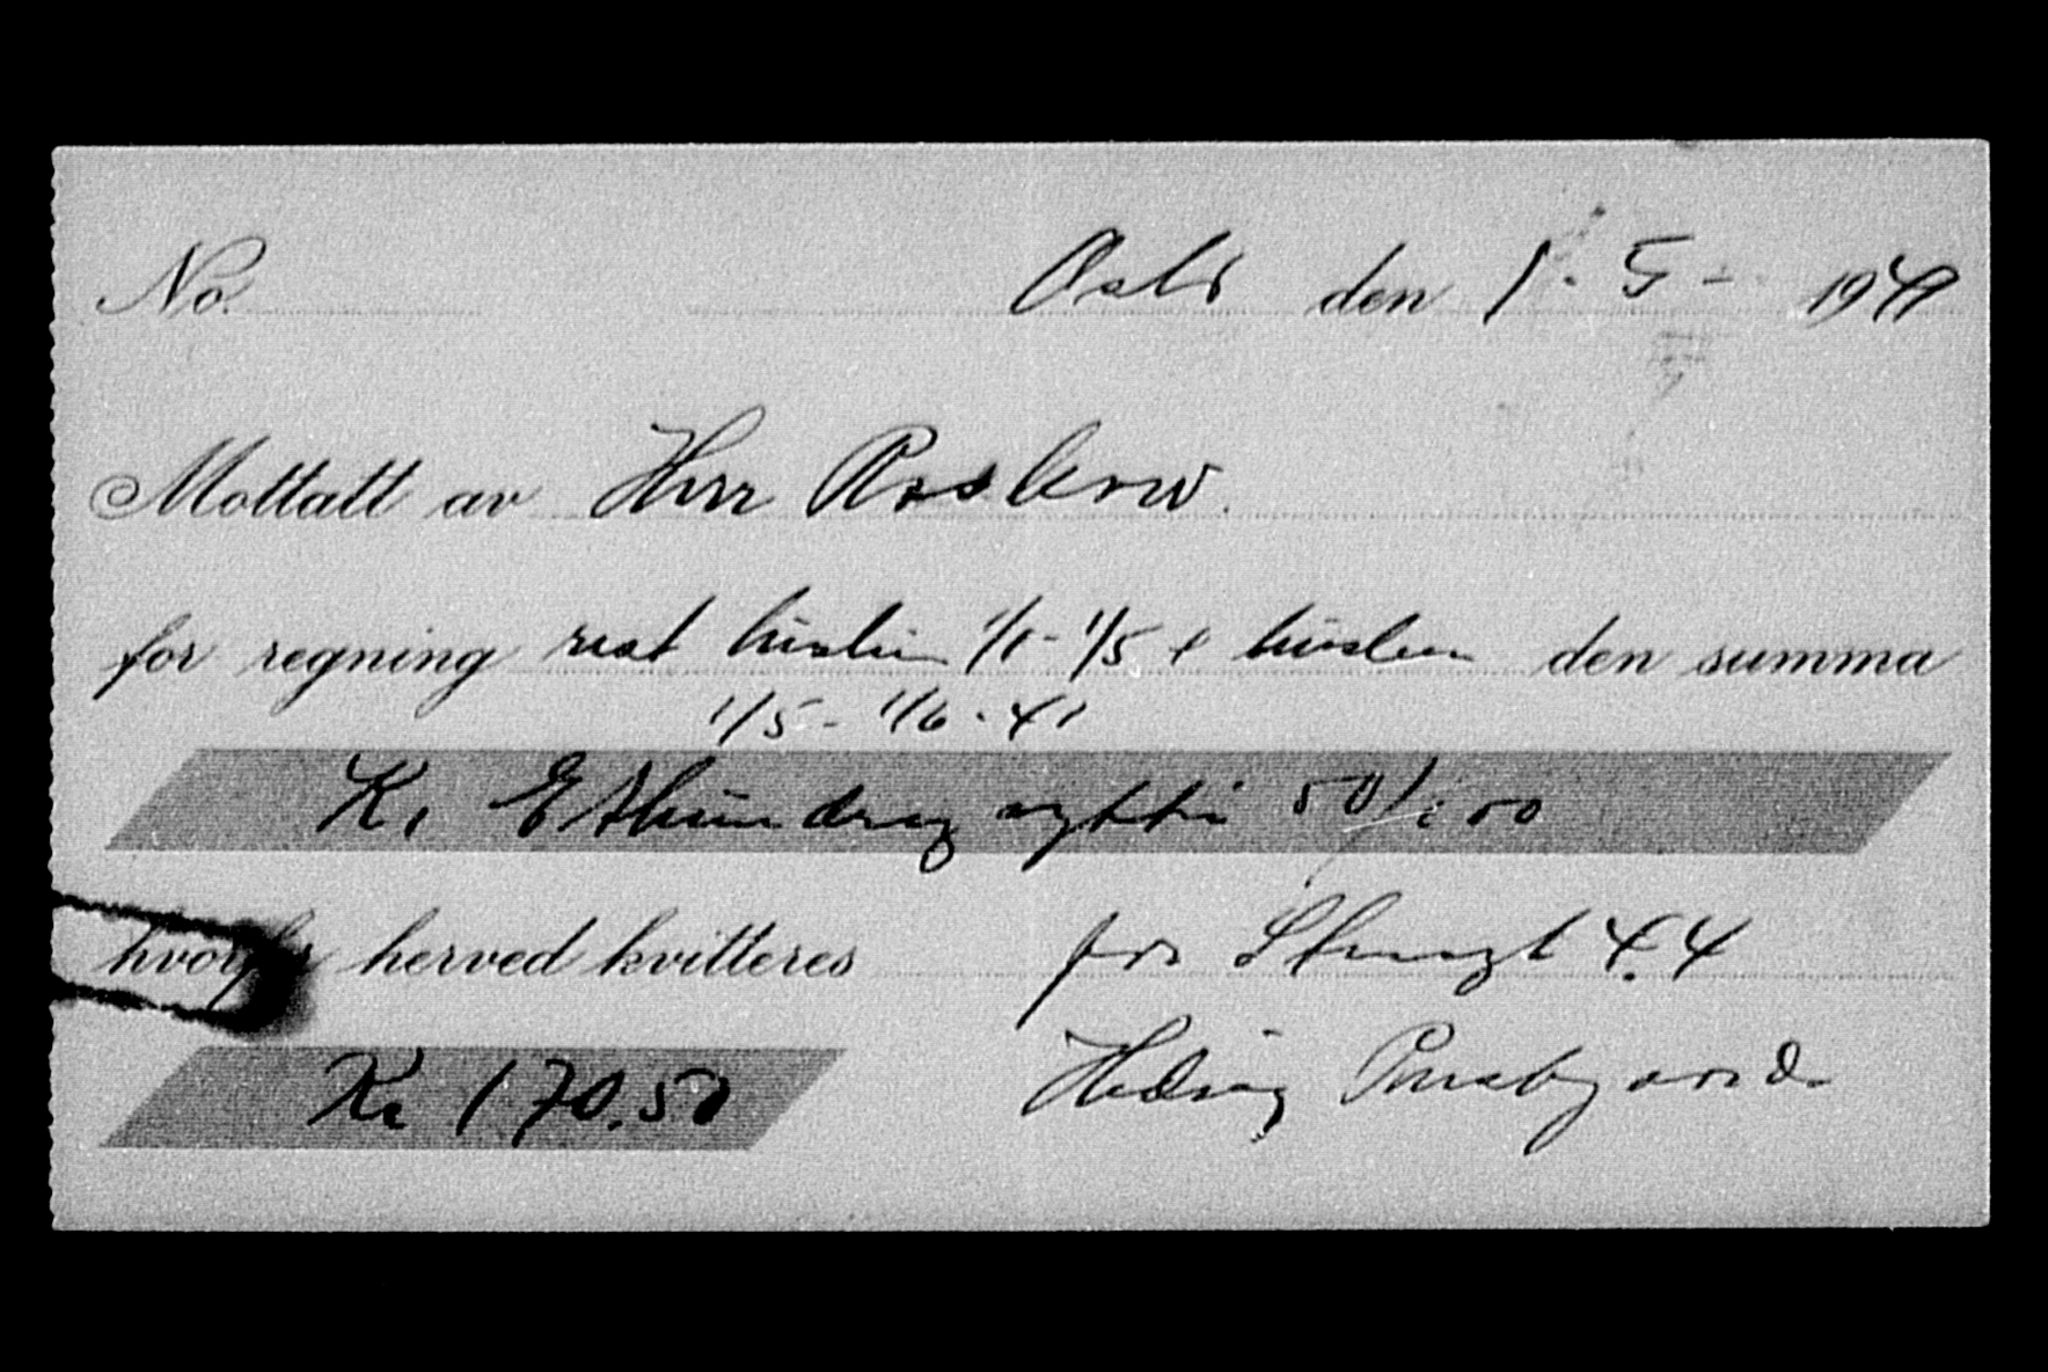 No. Oslo den 1.5- 1941
Mottatt av Herr Roskow.
for regning rest husleie 1/1-1/5 + husleie den summa
1/5-1/6-41
Kr Ethundreogsytti 50/100
hvorfor herved kvitteres for Stensgt 4.4
Kr 170.50 Hedvig